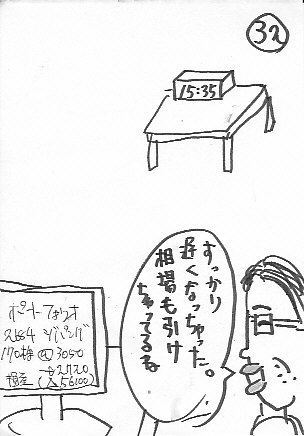 32
15:35
すっかり
遅くなっちゃった。
相場も引け
ちゃってるね
ポートフォリオ
2684 ジパング
170株 @3050
→2720
(△56100)